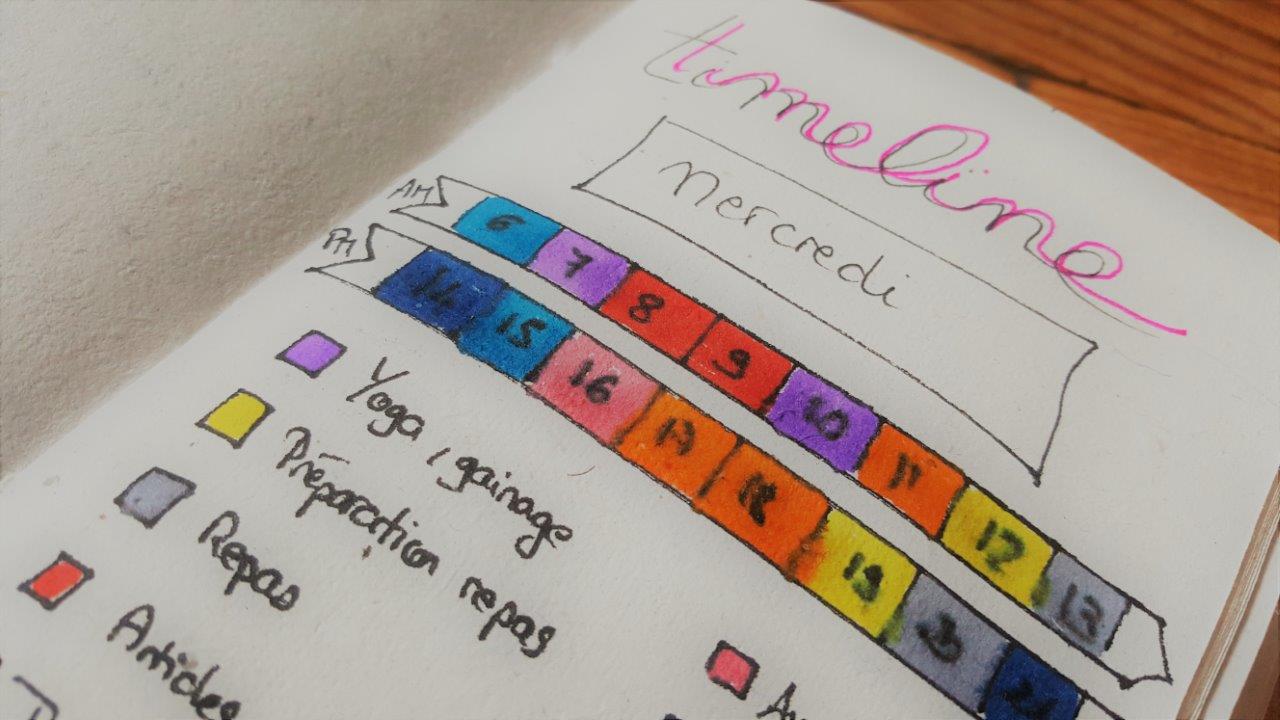 timeline
Mercredi
AM 6 7 8 9 10 11 12 13
PM 14 15 16 17 18 19 20 21
Yoga, gainage
Préparation repas
Repas
Articles